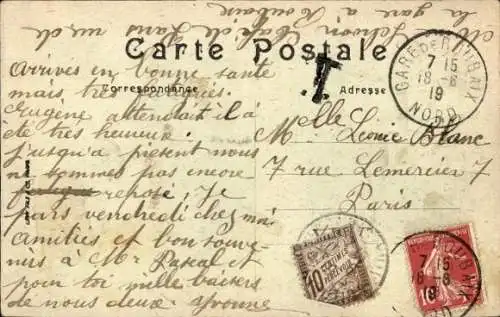 la gare à Roubaix
Carte Postale
Correspondance
Adresse
T
GARE DE ROUBAIX
7 15
18 - 8
19
NORD
Arrivés en bonne santé
mais très fatigués.
Eugène attendait il à
été très heureux.
jusqu'a présent nous
n sommes pas encore
reposé, Je
pars vendredi chez moi
Amitiés et bon souve-
nirs à Mr Pascal et
pour toi mille baisers
de nous deux. Yvonne
Melle Léonie Blanc
7 rue Lemercier 7
Paris
10
CENTIMES
À PERCEVOIR
ROUBAIX
7 15
8
19
NORD